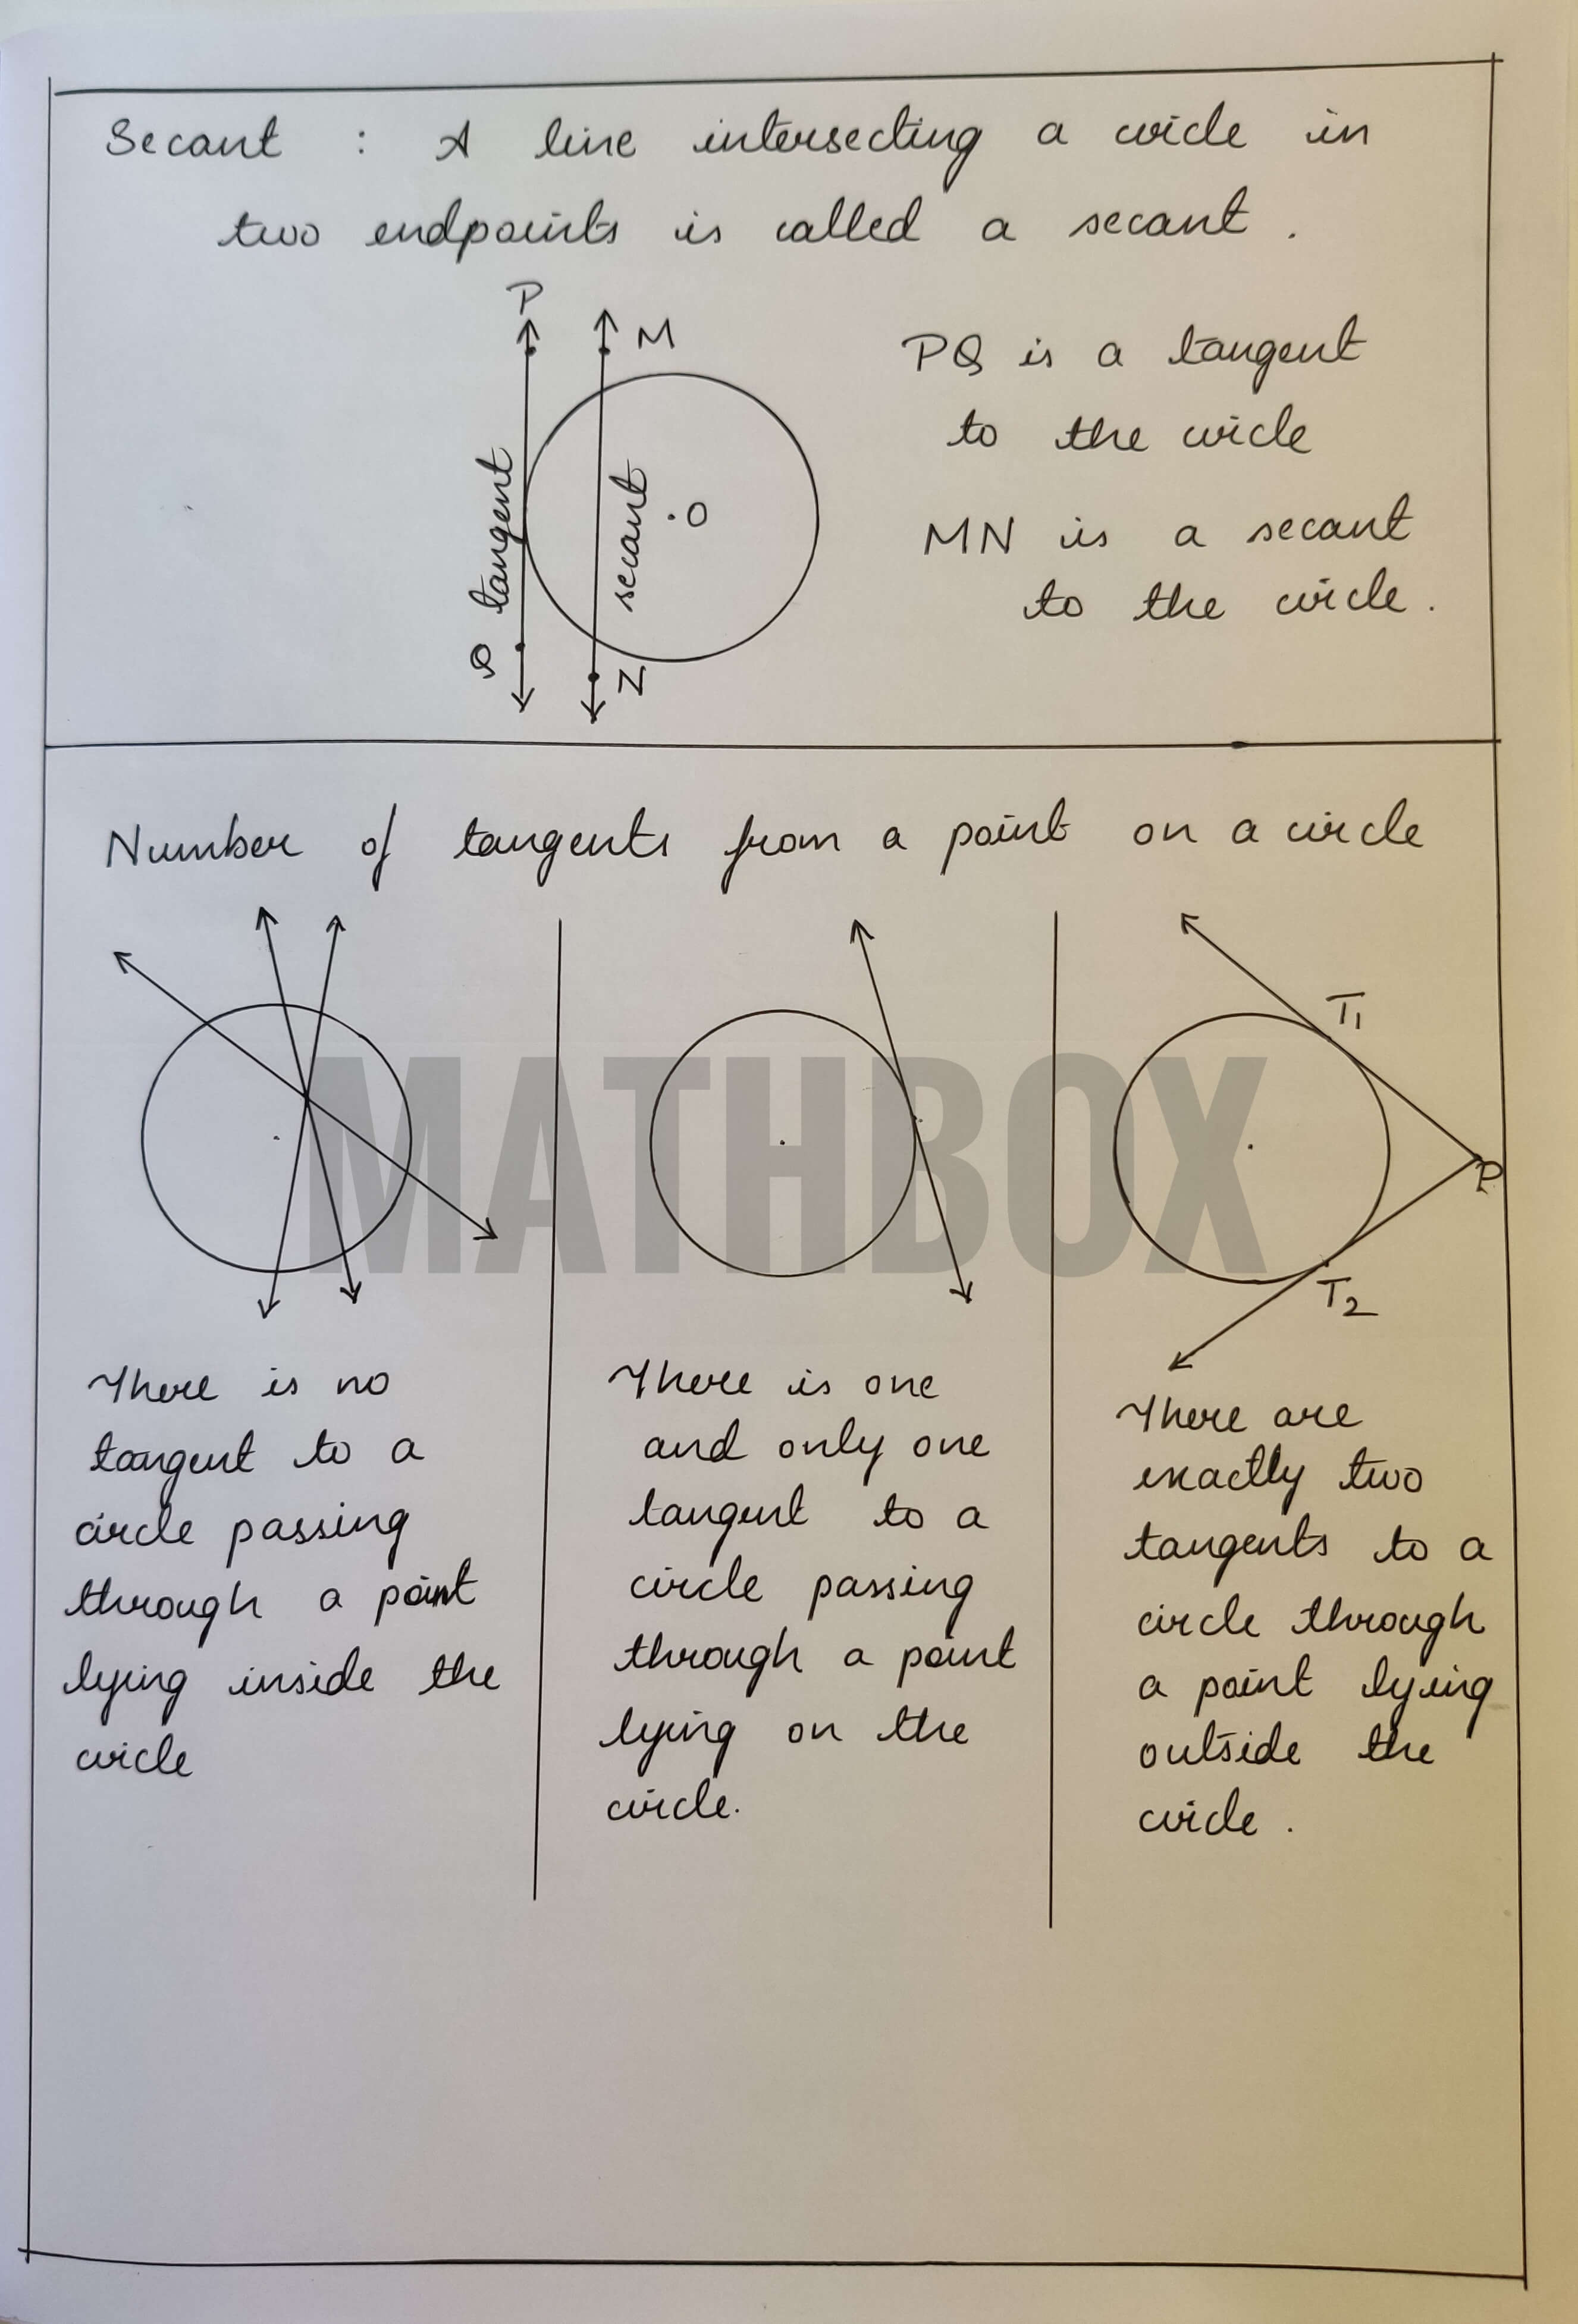 Secant : A line intersecting a circle in
two endpoints is called a secant.
P
M
tangent
secant
.O
Q
N
PQ is a tangent
to the circle
MN is a secant
to the circle.
Number of tangents from a point on a circle
T1
P
T2
MATHBOX
There is no
tangent to a
circle passing
through a point
lying inside the
circle
There is one
and only one
tangent to a
circle passing
through a point
lying on the
circle.
There are
exactly two
tangents to a
circle through
a point lying
outside the
circle.